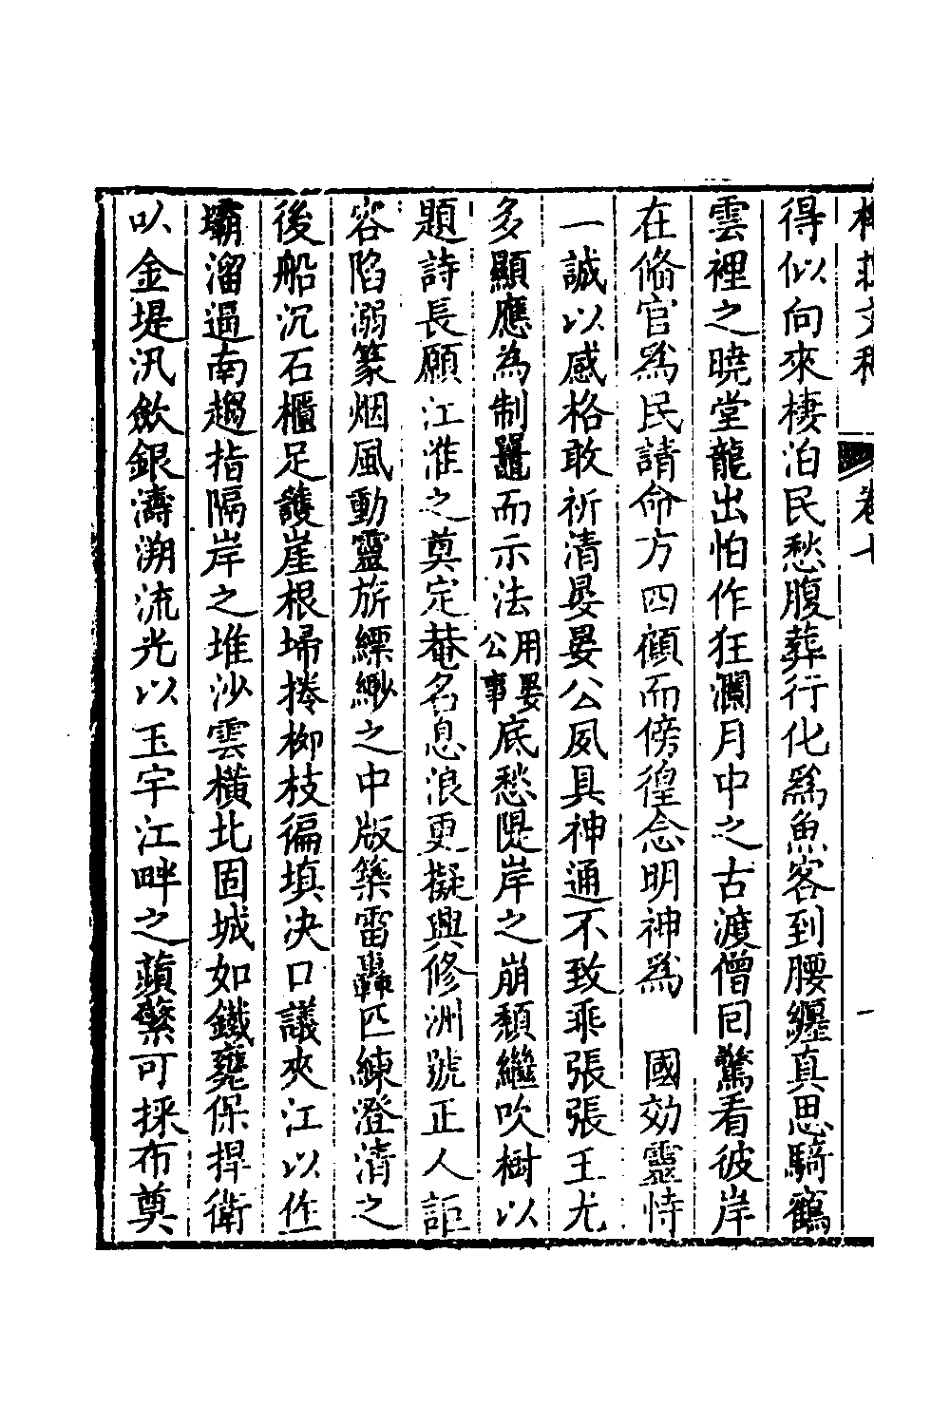 卷七
得似向來棲泊民愁腹葬行化爲魚客到腰纏真思騎鶴
雲裡之曉堂龍出怕作狂瀾月中之古渡僧囘驚看彼岸
在脩官爲民請命方四顧而傍徨念明神爲 國効靈恃
一誠以感格敢祈清晏晏公夙具神通不致乖張張王尤
多顯應為制鼉而示法用晏公事底愁隄岸之崩頹繼吹樹以
題詩長願江淮之奠定菴名息浪更擬興修洲號正人詎
容陷溺篆烟風動靈旂縹緲之中版築雷轟匹練澄清之
後船沉石櫃足護崖根埽捲柳枝徧填决口議夾江以作
壩溜逼南趨指隔岸之堆沙雲橫北固城如鐵甕保捍衛
以金堤汛斂銀濤溯流光以玉宇江畔之蘋蘩可採布奠